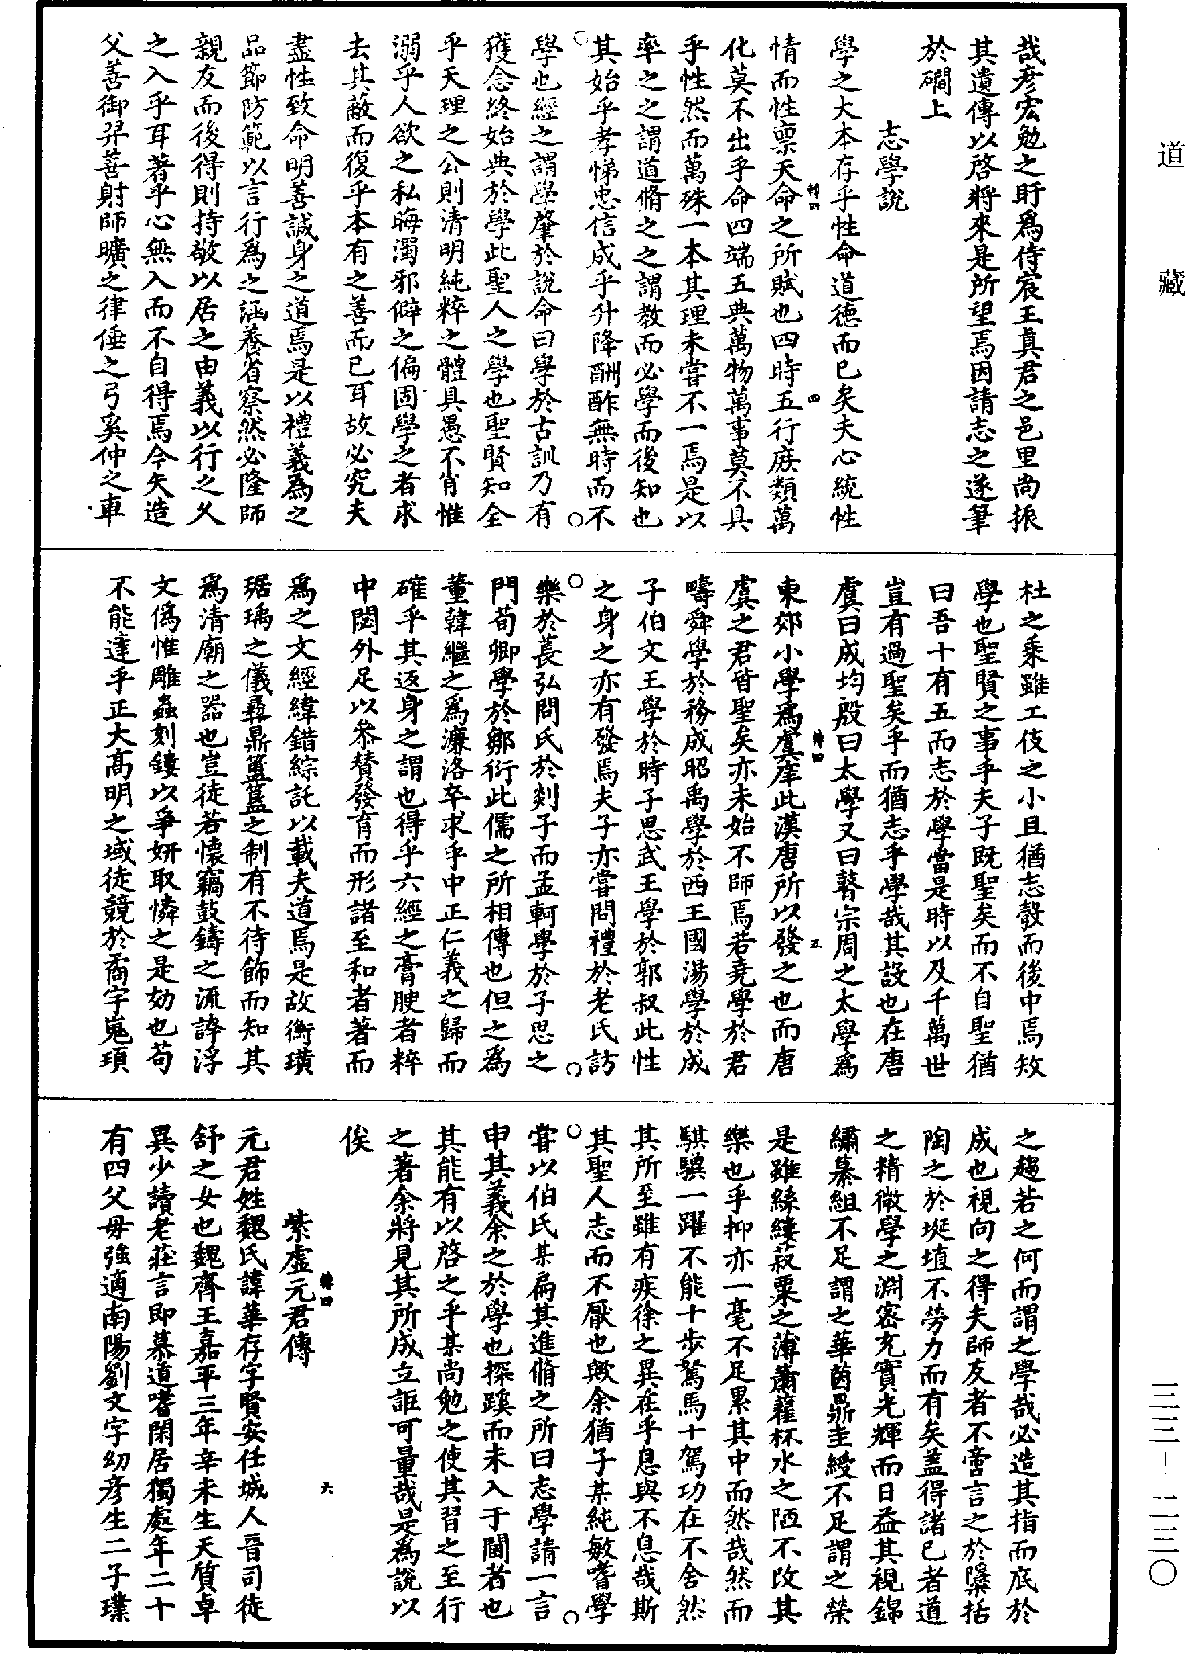 道藏
哉彦宏勉之盱爲侍宸王真君之邑里尚振
其遺傳以啓將來是所望焉因請志之遂筆
於磵上
志學說
學之大本存乎性命道德而已矣夫心統性
情而性稟天命之所賦也四時五行庶類萬
化莫不出乎命四端五典萬物萬事莫不具
乎性然而萬殊一本其理未嘗不一焉是以
率之之謂道脩之之謂教而必學而後知也
其始乎孝悌忠信成乎升降酬酢無時而不
學也經之謂學肇於說命曰學於古訓乃有
獲念終始典於學此聖人之學也聖賢知全
乎天理之公則清明純粹之體具愚不肖惟
溺乎人欲之私晦濁邪僻之偏固學之者求
去其蔽而復乎本有之善而已耳故必究夫
盡性致命明善誠身之道焉是以禮義為之
品節防範以言行爲之涵養省察然必隆師
親友而後得則持敬以居之由義以行之父
之入乎耳著乎心無入而不自得焉今矢造
父善御羿善射師曠之律倕之弓奚仲之車
杜之乘雖工伎之小且猶志彀而後中焉矧
學也聖賢之事乎夫子既聖矣而不自聖猶
曰吾十有五而志於學當是時以及千萬世
豈有過聖矣乎而猶志乎學哉其設也在唐
虞曰成均殷曰太學又曰瞽宗周之太學爲
東郊小學爲虞庠此漢唐所以發之也而唐
虞之君皆聖矣亦未始不師焉若堯學於君
疇舜學於務成昭禹學於西王國湯學於成
子伯文王學於時子思武王學於郭叔此性
之身之亦有發焉夫子亦嘗問禮於老氏訪
樂於萇弘問氏於剡子而孟軻學於子思之
門荀卿學於鄒衍此儒之所相傳也但之為
董韓繼之爲濂洛卒求乎中正仁義之歸而
確乎其返身之謂也得乎六經之膏腴者粹
中閎外足以叅賛發育而形諸至和者著而
爲之文經緯錯綜託以載夫道焉是故衡璜
琚瑀之儀彝鼎簠簋之制有不待飾而知其
爲清廟之器也豈徒若懷竊鼓鑄之流誶浮
文僞惟雕蟲刻鏤以爭妍取憐之是効也茍
不能達乎正大高明之域徒競於矞宇嵬瑣
之趨若之何而謂之學哉必造其指而底於
成也視向之得夫師友者不啻言之於檃括
陶之於埏埴不勞力而有矣蓋得諸已者道
之精微學之淵密充實光輝而日益其視錦
繡纂組不足謂之華茵鼎圭綬不足謂之榮
是雖絲縷菽粟之薄蕭䕮杯水之陋不改其
樂也乎抑亦一毫不足累其中而然哉然而
騏驥一躍不能十步駑馬十駕功在不舍然
其所至雖有疾徐之異在乎息與不息哉斯
其聖人志而不厭也歟余猶子某純敏嗜學
甞以伯氏某扁其進脩之所曰志學請一言
申其義余之於學也探蹊而未入于閫者也
其能有以啓之乎某尚勉之使其習之至行
之著余將見其所成立詎可量哉是爲說以
俟
紫虛元君傳
元君姓魏氏諱華存字賢安任城人晉司徒
舒之女也魏齊王嘉平三年辛未生天質卓
異少讀老莊言即慕道嗜閑居獨處年二十
有四父母強適南陽劉文字幼彥生二子璞
三三－二三〇